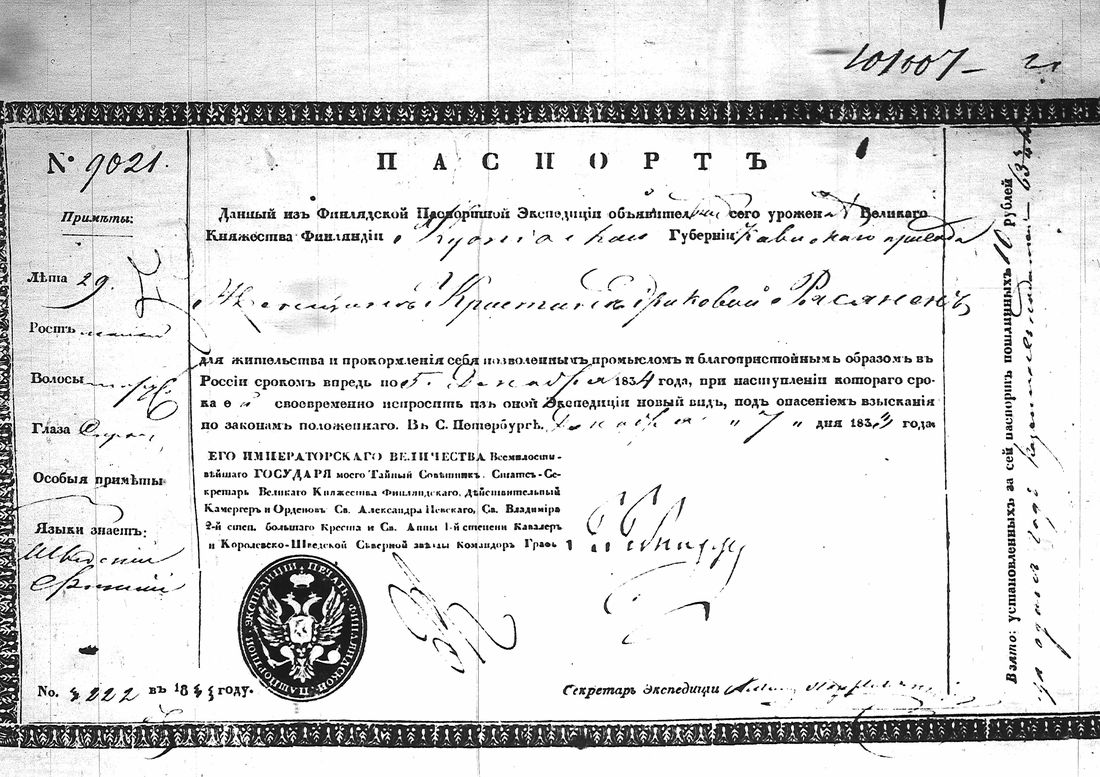 101007
№ 9021.
ПАСПОРТЪ
Примѣты:
Лѣта 29.
Ростъ малый
Волосы
Глаза Сѣрые
Особыя примѣты
Языки знаетъ:
Шведский
Финский
Данный изъ Финлядской Паспортной Экспедиціи объявительницѣ сего урожен Великаго
Княжества Финляндіи Куопиоской Губерніи прихода
Женщинѣ Кристинѣ Рясяненъ
для жительства и прокормленія себя позволеннымъ промысломъ и благопристойнымъ образомъ въ
Россіи срокомъ впредь по Декабря 1834 года, при наступленіи котораго сро-
ка ей своевременно испросить изъ оной Экспедиціи новый видъ, подъ опасеніемъ взысканія
по законамъ положеннаго. Въ С. Петербургѣ. Декабря „ 7 „ дня 1833 года.
ЕГО ИМПЕРАТОРСКАГО ВЕЛИЧЕСТВА Всемилости-
вѣйшаго ГОСУДАРЯ моего Тайный Совѣтникъ, Статсъ-Се-
кретарь Великаго Княжества Финляндскаго, Дѣйствительный
Камергеръ и Орденовъ Св. Александра Невскаго, Св. Владиміра
2-й степ. большаго Креста и Св. Анны 1-й степени Кавалеръ
и Королевско-Шведской Сѣверной звѣзды Командоръ Графъ
ПЕЧАТЬ ФИНЛЯДСКОЙ ПАШПОРТНОЙ ЭКСПЕДИЦІИ
No. 2222 въ 1833 году.
Секретарь Экспедиціи
Взято: установленныхъ за сей паспортъ пошлинныхъ 10 Рублей
за одинъ годъ